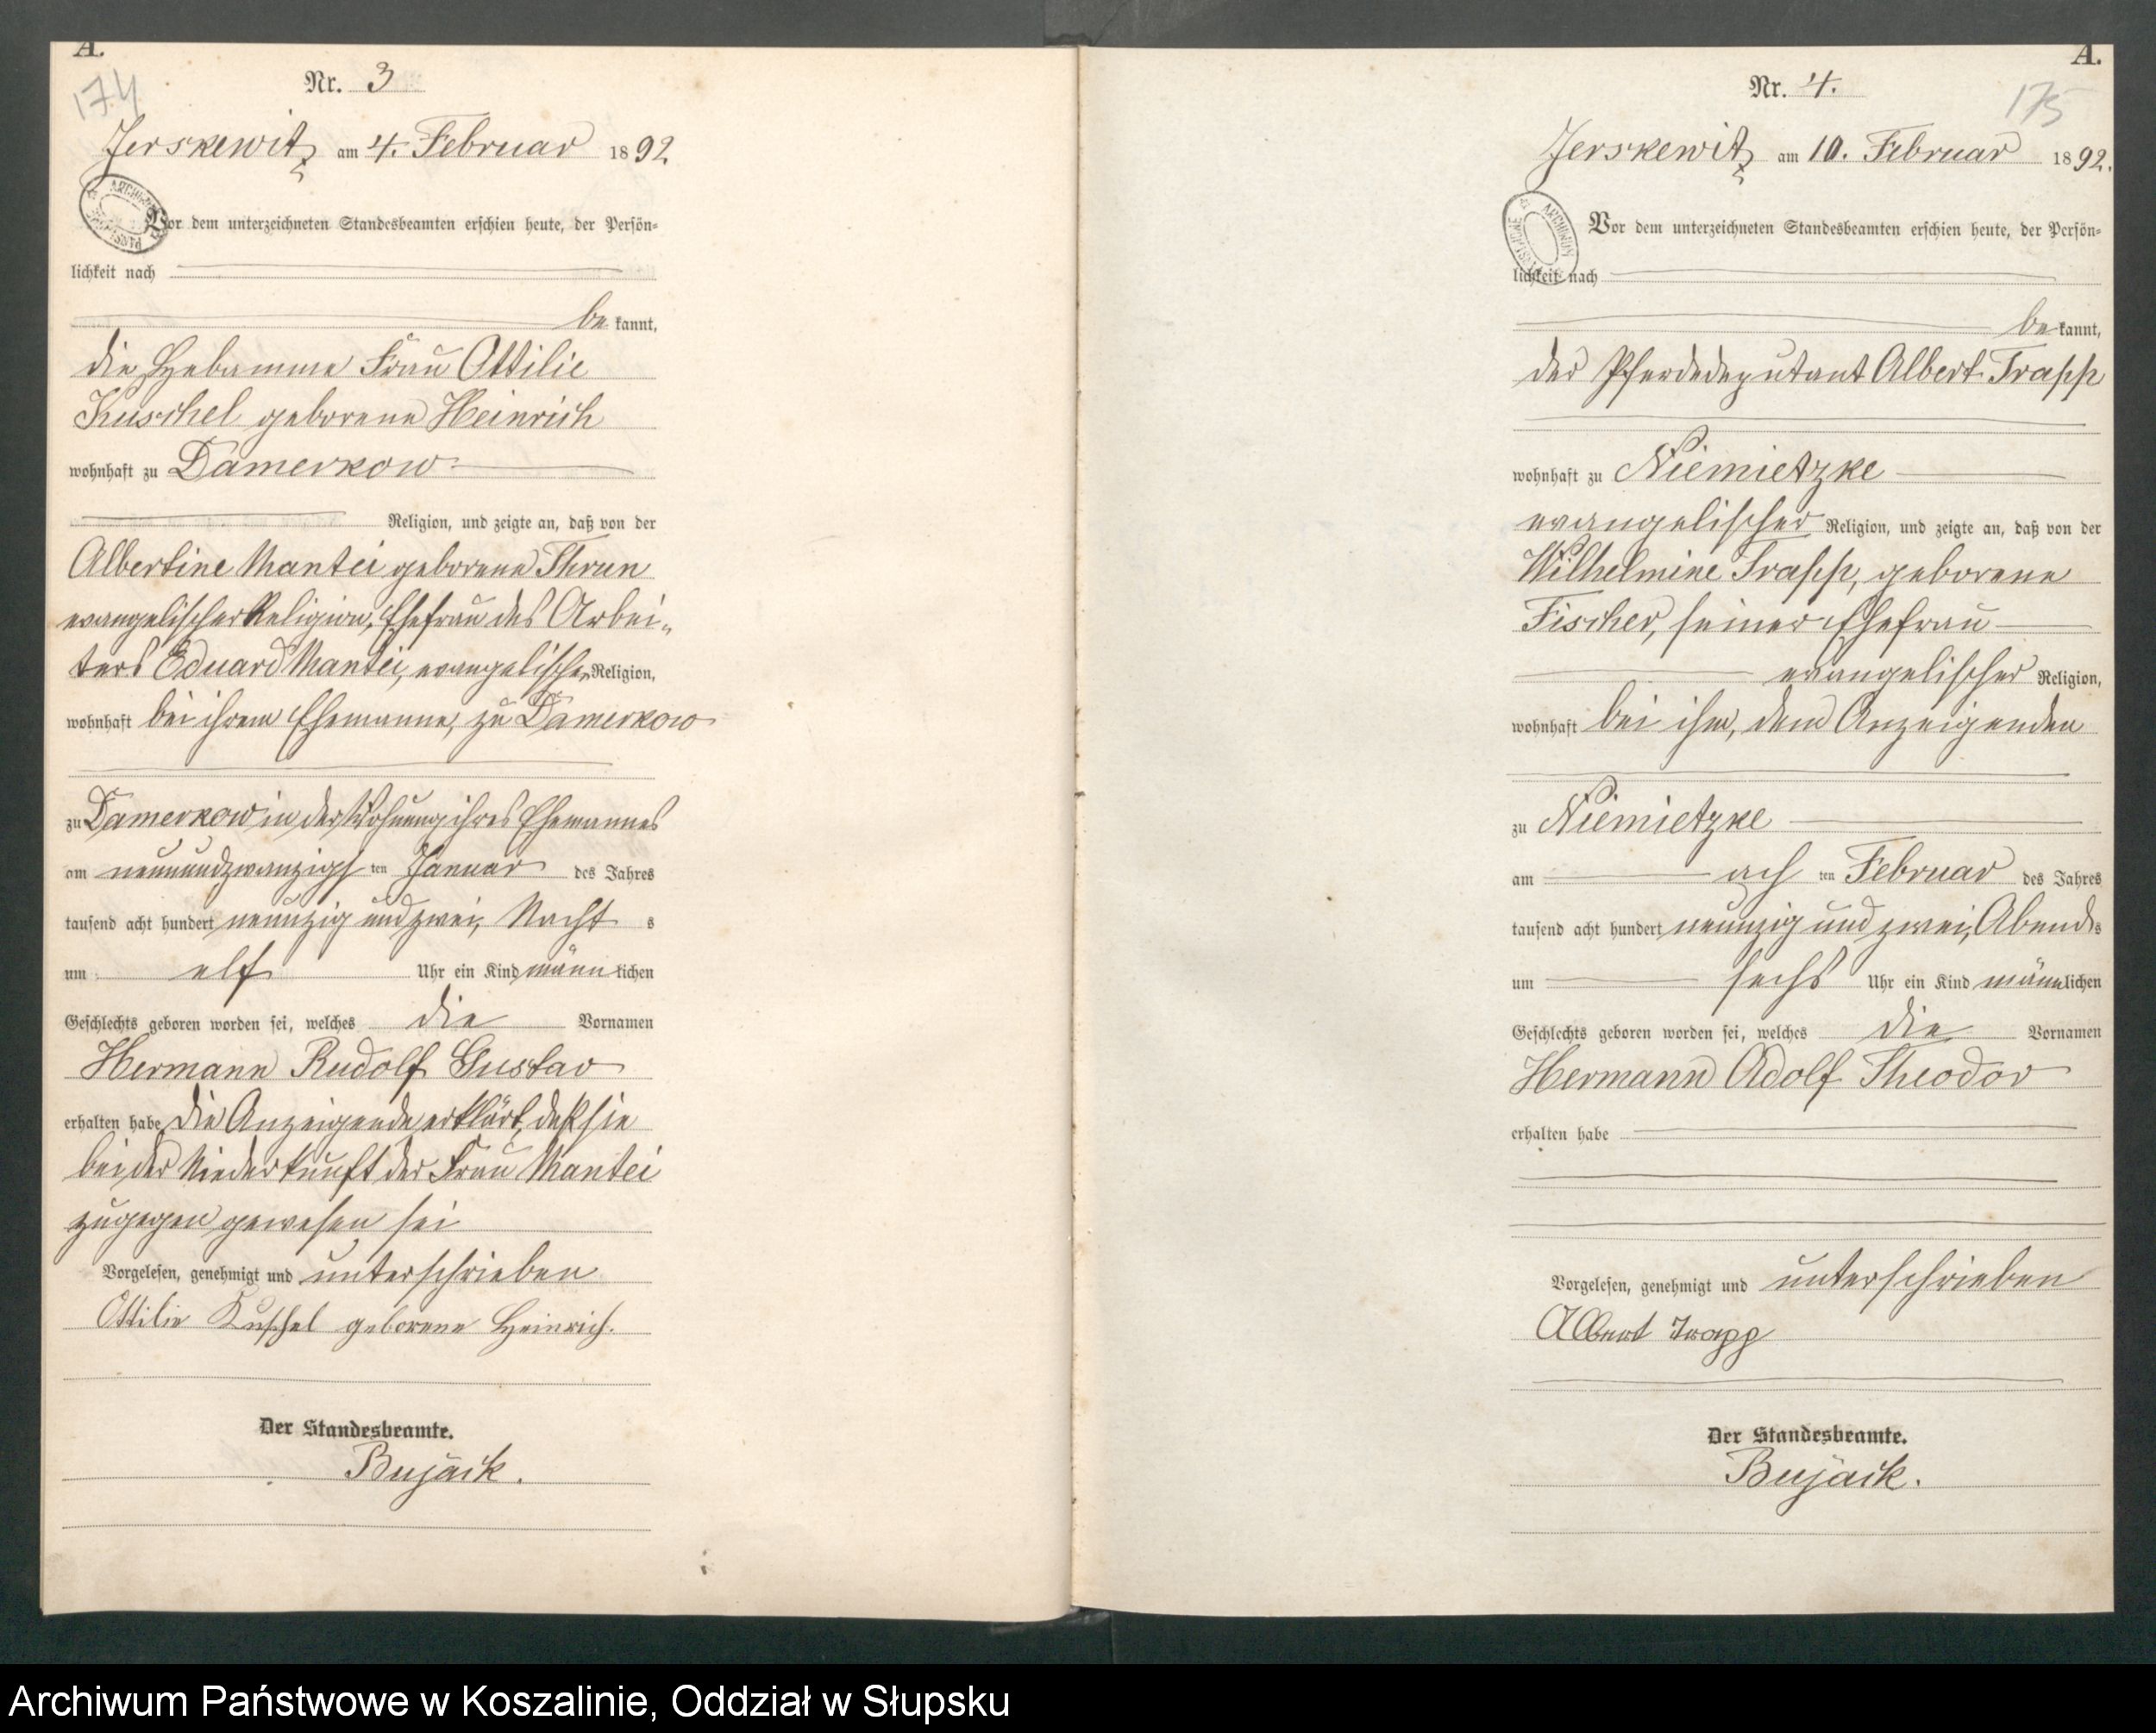 A.
174
Nr. 3
Jerskewitz am 4. Februar 1892.
Vor dem unterzeichneten Standesbeamten erschien heute, der Persön-
lichkeit nach
be kannt,
die Hebamme Frau Ottilie
Kuschel geborene Heinrich
wohnhaft zu Damerkow
Religion, und zeigte an, daß von der
Albertine Mantei geborene Thrun
evangelischer Religion, Ehefrau des Arbei-
ters Eduard Mantei, evangelischer Religion,
wohnhaft bei ihrem Ehemanne, zu Damerkow
zu Damerkow in der Wohnung ihres Ehemannes
am neunundzwanzigsten Januar des Jahres
tausend acht hundert neunzig und zwei, Nacht s
um elf Uhr ein Kind männlichen
Geschlechts geboren worden sei, welches die Vornamen
Hermann Rudolf Gustav
erhalten habe. Die Anzeigende erklärt, daß sie
bei der Niederkunft der Frau Mantei
zugegen gewesen sei
Vorgelesen, genehmigt und unterschrieben
Ottilie Kuschel geborene Heinrich.
Der Standesbeamte.
Bujack.
A.
175
Nr. 4.
Jerskewitz am 10. Februar 1892.
Vor dem unterzeichneten Standesbeamten erschien heute, der Persön-
lichkeit nach
be kannt,
der Pferdedeputant Albert Trapp
wohnhaft zu Niemietzke
evangelischer Religion, und zeigte an, daß von der
Wilhelmine Trapp, geborene
Fischer, seiner Ehefrau
evangelischer Religion,
wohnhaft bei ihm, dem Anzeigenden
zu Niemietzke
am achten Februar des Jahres
tausend acht hundert neunzig und zwei, Abends
um sechs Uhr ein Kind männlichen
Geschlechts geboren worden sei, welches die Vornamen
Hermann Adolf Theodor
erhalten habe
Vorgelesen, genehmigt und unterschrieben
Albert Trapp
Der Standesbeamte.
Bujack.
Archiwum Państwowe w Koszalinie, Oddział w Słupsku